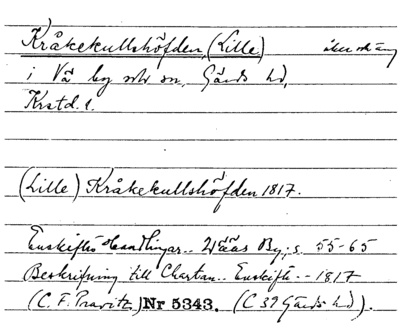 Kråkekullshöfden, (Lille) åker och äng
i Vä by och sn, Gärds hd,
Krstd. l.
(Lille) Kråkekullshöfden 1817.
Enskiftes Handlingar.. Wääs By; s. 55-65
Beskrifning till Chartan.. Enskifte -- 1817
(C. F. Pravitz) Nr 5343. (C 39 Gärds hd).